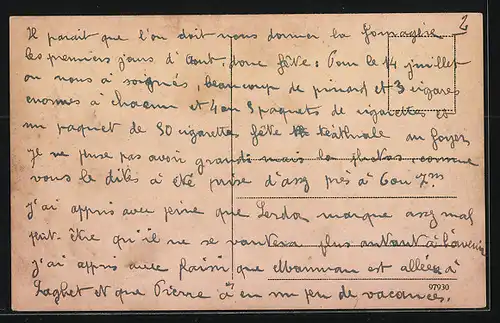 2
Il parait que l'on doit nous donner la fourragère
les premiers jours d'Aout. donc fête. Pour le 14 juillet
on nous à soignés, beaucoup de pinard et 3 cigares
enormes à chacun et 4 ou 5 paquets de cigarettes et
un paquet de 50 cigarettes, fête théatrale au foyer
je ne pense pas avoir grandi mais la photo, comme
vous le dites à été prise d'assez près à 6 ou 7m
j'ai appris avec peine que Lerda marque assez mal
peut-être qu'il ne se vantera plus autant à l'avenir
j'ai appris avec plaisir que Maman est allée à
Laghet et que Pierre à eu un peu de vacances.
97930